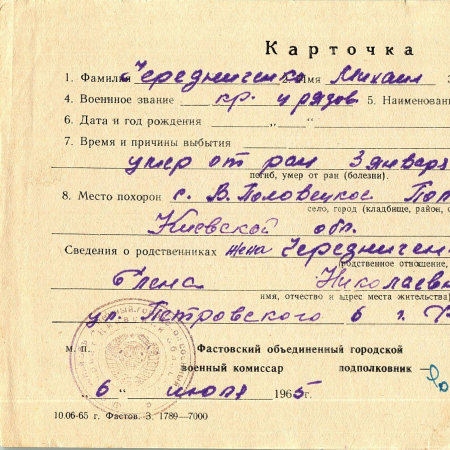 Карточка
1. Фамилия Чередниченко 2. Имя Михаил 3
4. Воинское звание кр. и рядов 5. Наименован
6. Дата и год рождения „ “
7. Время и причины выбытия
умер от ран 3 января
погиб, умер от ран (болезни).
8. Место похорон с. В. Половецкое Пол
село, город (кладбище, район, о
Киевской обл.
Сведения о родственниках жена Чередничен
(родственное отношение,
Елена Николаевн
имя, отчество и адрес места жительства)
ул. Петровского 6 г.
М. П. Фастовский объединенный городской
военный комиссар подполковник —
„6“ июля 1965г.
10.06-65 г. Фастов. З. 1789—7000